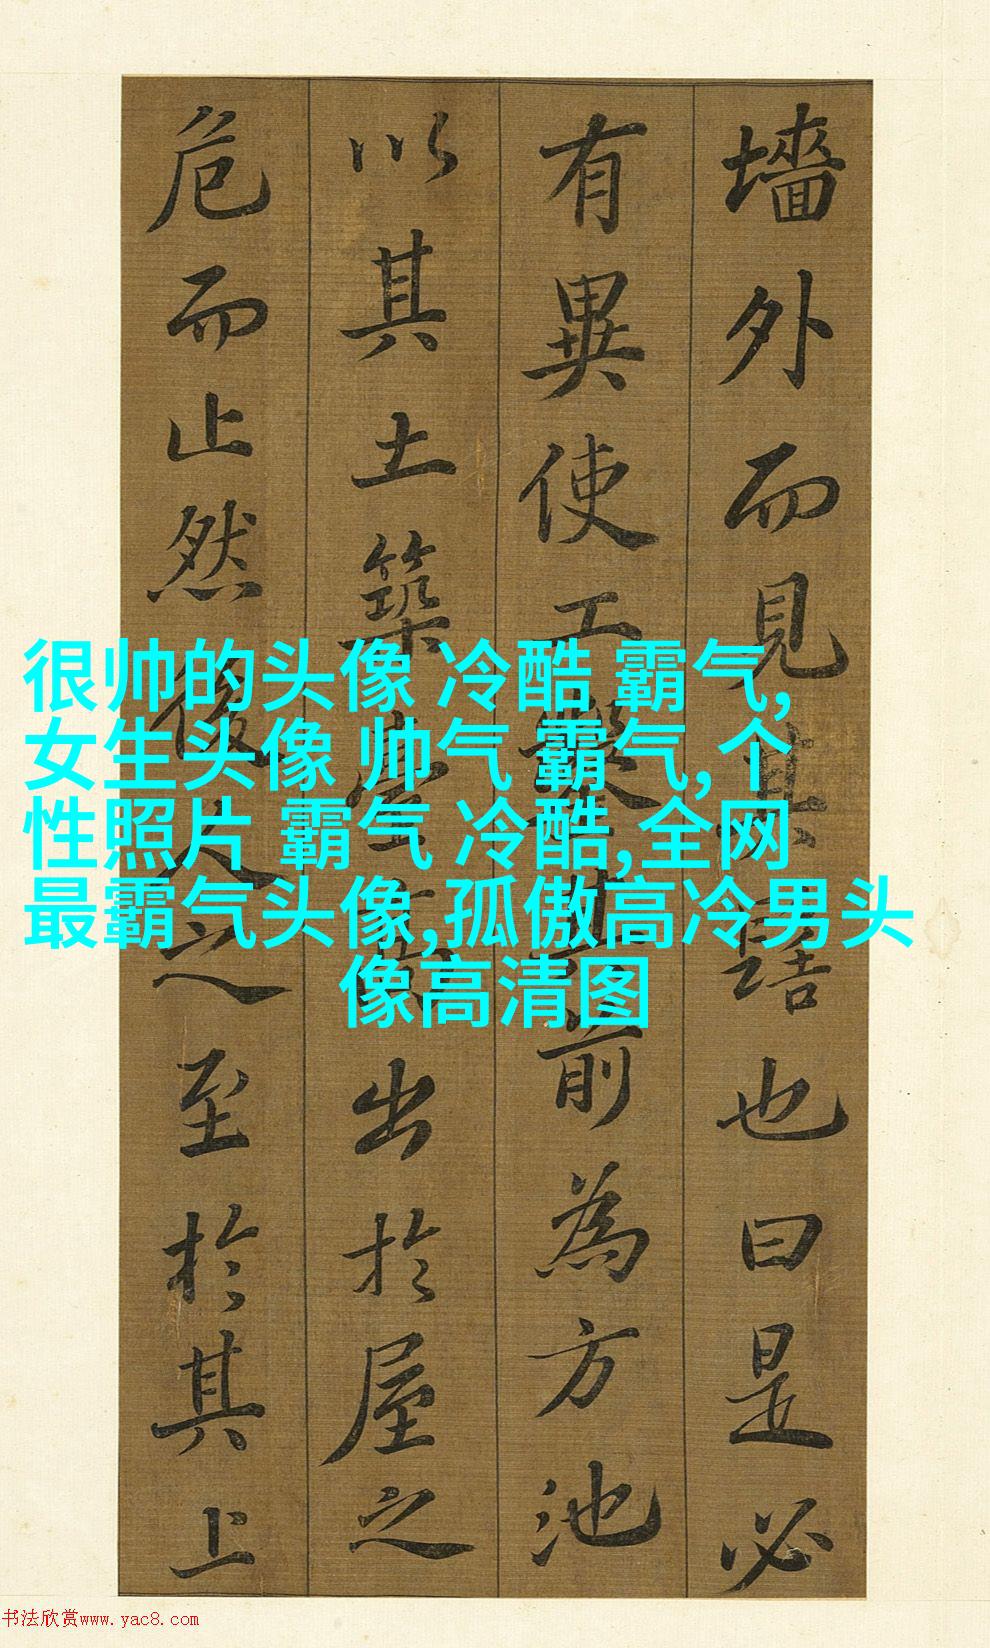 墻外而見其也曰是必
有異使工鑿其前為方池
以其土築臺高出於屋之
危而止然後人之至於其上
很帅的头像 冷酷 霸气,
女生头像 帅气 霸气,个
性照片 霸气 冷酷,全网
最霸气头像,孤傲高冷男头
像高清图
书法欣赏www.yac8.com